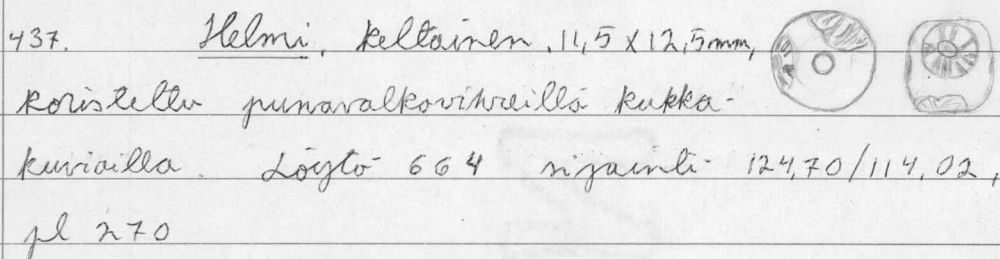 437. Helmi, keltainen, 11,5 x 12,5mm,
koristeltu punavalkovihreillä kukka-
kuvioilla. Löytö 664 sijainti 124,70/114,02,
pl 270